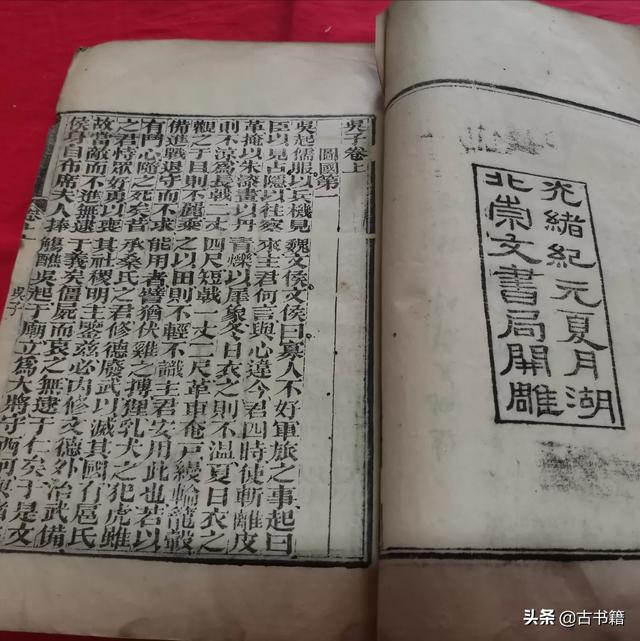 光緒紀元夏月湖
北崇文書局開雕
吳子卷上
圖國第一
吳起儒服以兵機見魏文侯文侯曰寡人不好軍旅之事起曰
臣以見占隱以往察來主君何言與心違今君四時使斬離皮
革掩以朱漆畫以丹青爍以犀象冬日衣之則不溫夏日衣之
則不涼爲長戟二丈四尺短戟一丈二尺革車奄戸縵輪籠轂
觀之于目則不麗乘之以田則不輕不識主君安用此也若以
備進戰退守而不求能用者譬猶伏雞之搏狸乳犬之犯虎雖
有鬥心隨之死矣昔承桑氏之君修德廢武以滅其國有扈氏
之君恃眾好勇以喪其社稷明主鑒茲必內修文德外治武備
故當敵而不進無逮于義矣僵屍而哀之無逮于仁矣于是文
侯身自布席夫人捧觴醮吳起于廟立爲大將守西河與
吳子
头条 @古书籍